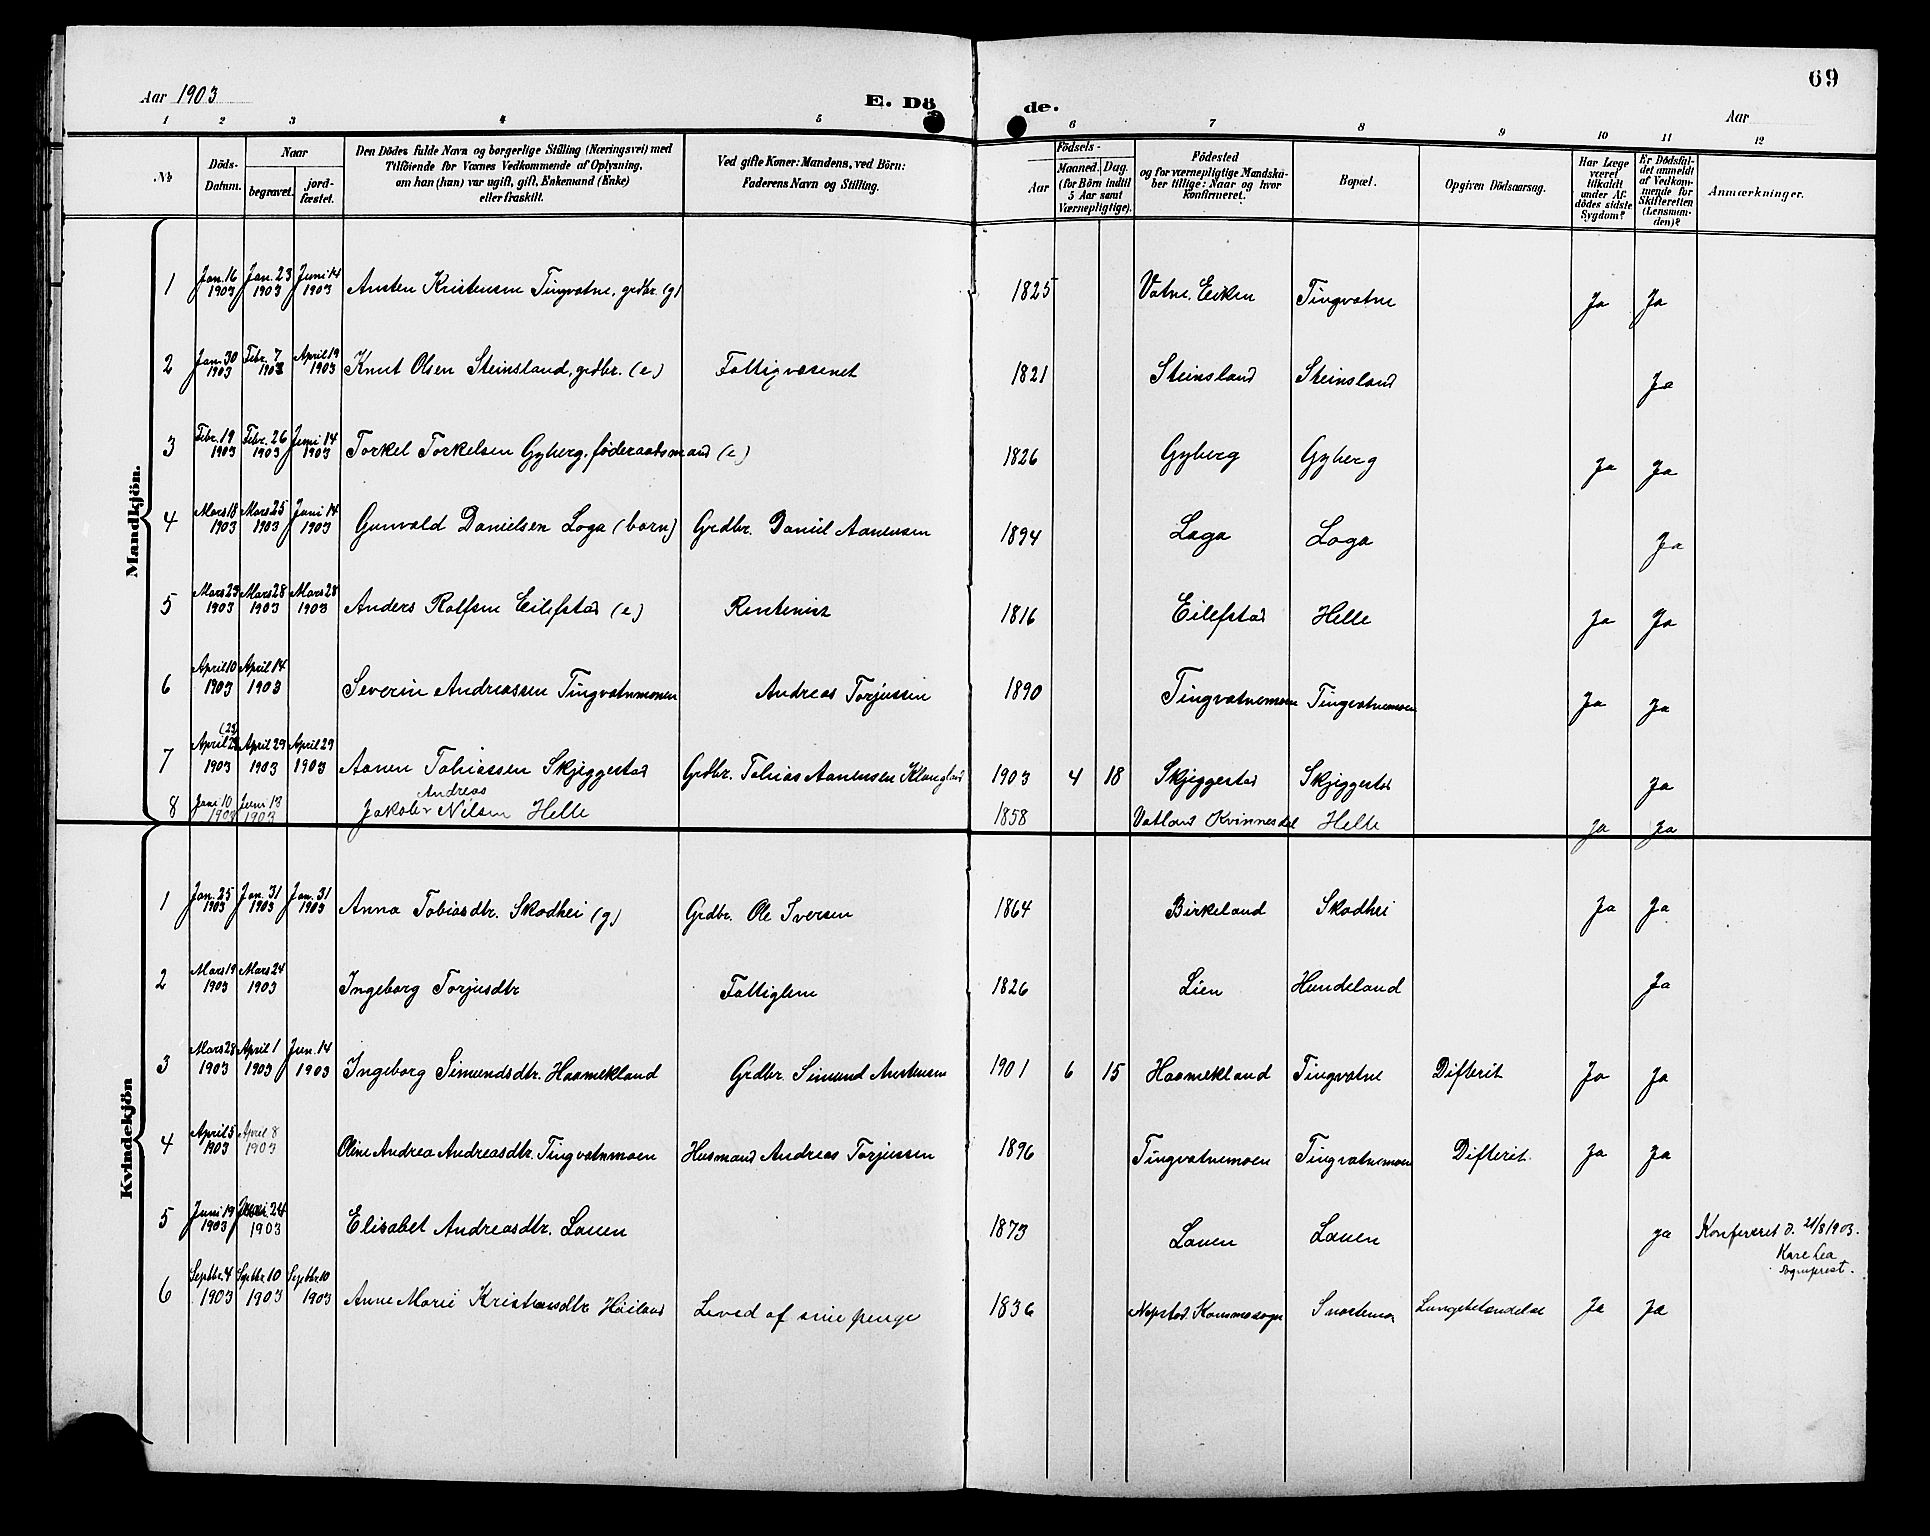 69
Aar 1903
E. Döde.
Aar
1 2 3 4 5 6 7 8 9 10 11 12
No
Döds-Datum.
Naar
begravet.
jordfæstet.
Den Dödes fulde Navn og borgerlige Stilling (Næringsvei) med
Tilföiende for Voxnes Vedkommende af Oplysning,
om han (hun) var ugift, gift, Enkemand (Enke)
eller fraskilt.
Ved gifte Koner: Mandens, ved Börn:
Faderens Navn og Stilling.
Födsels-
Aar
Maaned. Dag.
(for Börn indtil
5 Aar samt
Værnepligtige).
Födested
og for værnepligtige Mandska-
ber tillige: Naar og hvor
konfirmeret.
Bopæl.
Opgiven Dödsaarsag.
Har Læge
været
tilkaldt
under Af-
dödes sidste
Sygdom?
Er Dödsfal-
det anmeldt
af Vedkom-
mende for
Skifteretten
(Lensman-
den)?
Anmærkninger.
Mandkjön.
1 Jan. 16 1903 Jan. 23 1903 Juni 14 1903 Austen Kristensen Tingvatne, grdbr. (g) 1825 Vatne, Eiken Tingvatne Ja Ja
2 Jan. 30 1903 Febr. 7 1903 April 19 1903 Knut Olsen Steinsland, grdbr. (e) Fattigvæsenet 1821 Steinsland Steinsland Ja
3 Febr. 19 1903 Febr. 26 1903 Juni 14 1903 Torkel Torkelsen Gyberg, föderaadsmand (e) 1826 Gyberg Gyberg Ja Ja
4 Mars 18 1903 Mars 25 1903 Juni 14 1903 Gunvald Danielsen Loga (barn) Grdbr. Daniel Aanensen 1894 Loga Loga Ja
5 Mars 23 1903 Mars 28 1903 Mars 28 1903 Anders Rolfsen Eilefstad (e) Rentenist 1816 Eilefstad Helle Ja Ja
6 April 10 1903 April 14 1903 Severin Andreassen Tingvatnmonen Andreas Torjussen 1890 Tingvatnemoen Tingvatnemoen Ja Ja
(25)
7 April 1903 April 29 1903 April 29 1903 Aanen Tobiassen Skjeggestad Grdbr. Tobias Aanensen Klungland 1903 4 18 Skjeggestad Skjeggestad Ja
Andreas
8 Juni 10 1903 Juni 13 1903 Jakob Nilsen Helle 1858 Vatland Kvinnesdal Helle Ja Ja
Kvindekjön
1 Jan. 25 1903 Jan. 31 1903 Jan. 31 1903 Anna Tobiasdtr. Skodhei (g) Grdbr. Ole Iversen 1864 Birkeland Skodhei Ja Ja
2 Mars 19 1903 Mars 24 1903 Ingeborg Torjusdtr Fattiglem 1826 Lien Hundeland Ja
3 Mars 28 1903 April 1 1903 Jun. 14 1903 Ingeborg Simundsdtr. Haamekland Grdbr. Simund Austensen 1901 6 15 Haamekland Tingvatne Difterit Ja Ja
4 April 5 1903 April 8 1903 Oline Andrea Andreasdtr. Tingvatnmoen Husmand Andreas Torjussen 1896 Tingvatnemoen Tingvatnemoen Difterit. Ja Ja
5 Juni 19 1903 Juni 24 1903 Elisabet Andreasdtr. Lauen 1873 Lauen Lauen ja Konfereret d. 21/8 1903.
Kare Lea
sogneprest.
6 Septbr. 4 1903 Septbr 10 1903 Septbr. 10 1903 Anne Marie Kristensdtr Höiland Leved af sine penge 1836 Snartemo Lungebetændelse Ja Ja